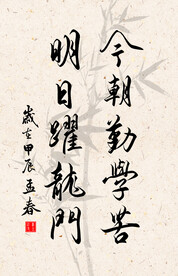 今朝勤學苦
明日躍龍門
歲在甲辰孟春